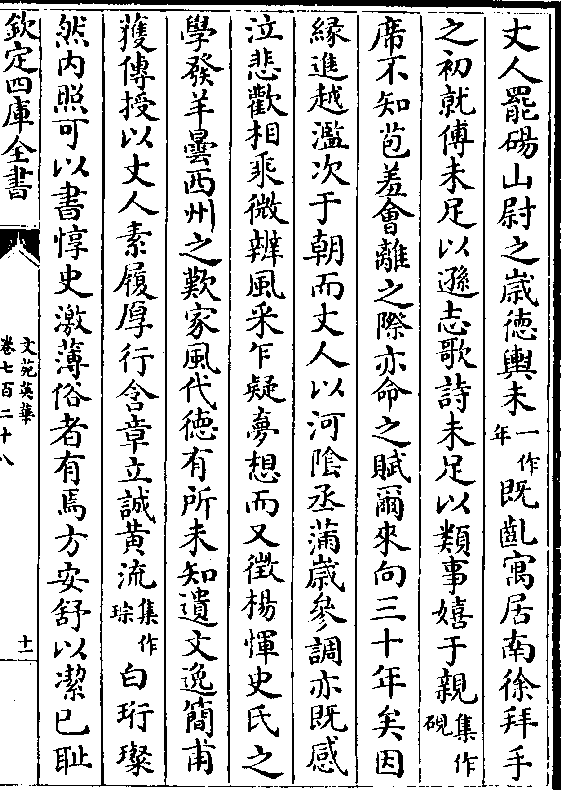 丈人罷碭山尉之歲德輿未一作年既齓寓居南徐拜手
之初就傅未足以遜志歌詩未足以類事嬉于親集作硯
席不知苞羞會離之際亦命之賦爾來向三十年矣因
緣進越濫次于朝而丈人以河隂丞蒲歲參調亦既感
泣悲歡相乘微辨風采乍疑夢想而又徵楊惲史氏之
學發羊曇西州之歎家風代德有所未知遺文逸簡甫
獲傳授以丈人素履厚行含章立誠黄流集作琮白珩璨
然内照可以書惇史激薄俗者有焉方安舒以潔已耻
欽定四庫全書
文苑英華
卷七百二十八
十一